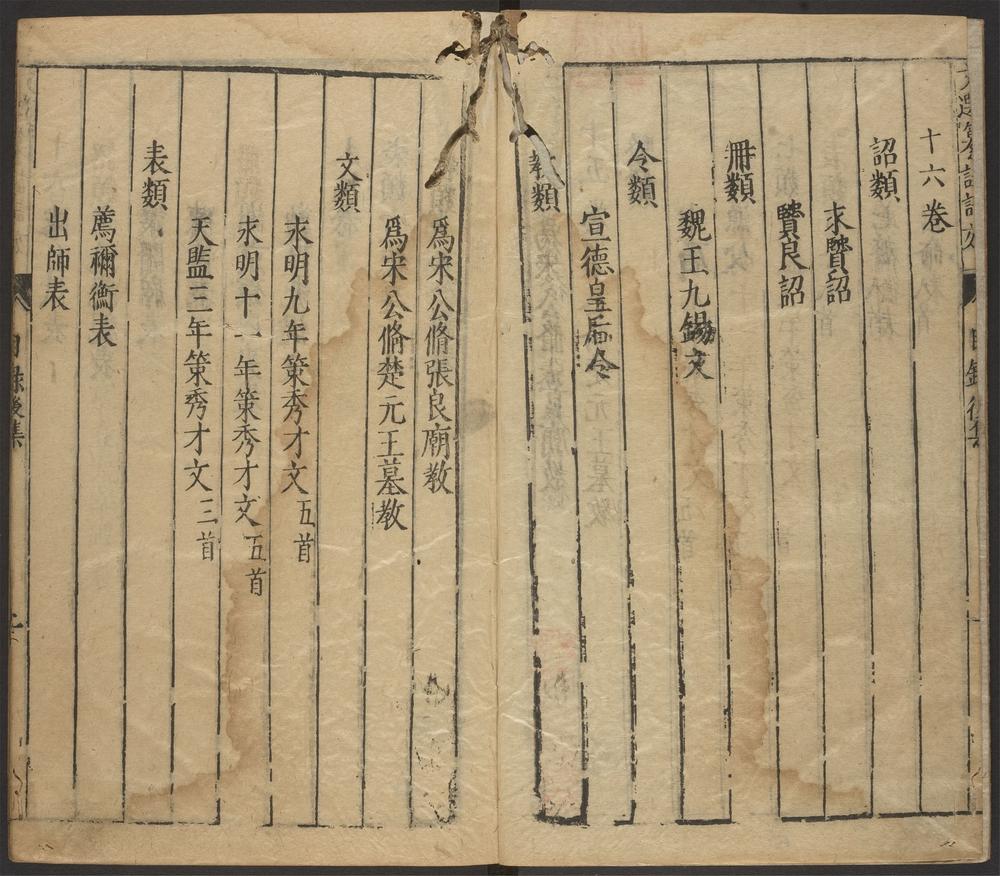 十六卷
詔類
求賢詔
賢良詔
冊類
魏王九錫文
令類
宣德皇后令
教類
爲宋公脩張良廟教
爲宋公脩楚元王墓教
文類
永明九年策秀才文五首
永明十一年策秀才文五首
天監三年策秀才文三首
表類
薦禰衡表
出師表
目錄後集